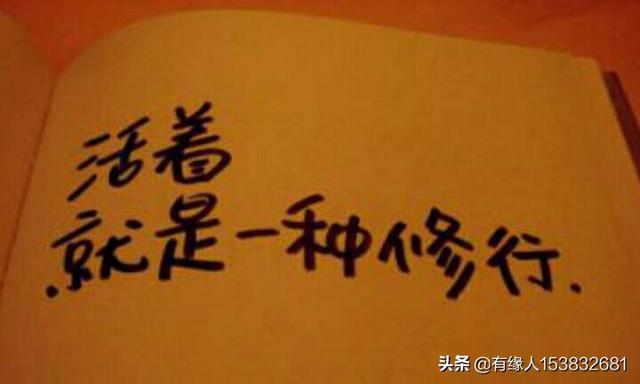 活着
就是一种修行.
头条 @有缘人153832681